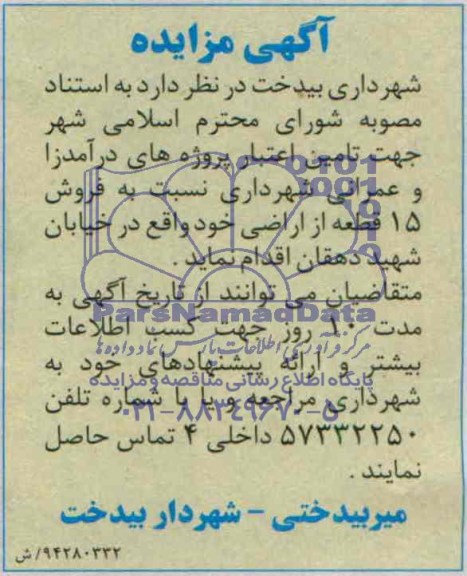 آگهی مزایده
شهرداری بیدخت در نظر دارد به استناد
مصوبه شورای محترم اسلامی شهر
جهت تامین اعتبار پروژه های درآمدزا
و عمرانی شهرداری نسبت به فروش
۱۵ قطعه از اراضی خود واقع در خیابان
شهید دهقان اقدام نماید .
متقاضیان می توانند از تاریخ آگهی به
ParsNamadData
مدت ۱۰ روز جهت کسب اطلاعات
مرکز فرآوری اطلاعات پارس نماد داده ها
بیشتر و ارائه پیشنهادهای خود به
پایگاه اطلاع رسانی مناقصه و مزایده
شهرداری مراجعه و یا با شماره تلفن
۰۲۱-۸۸۳۴۹۶۷۰-۵
۵۷۳۳۲۲۵۰ داخلی ۴ تماس حاصل
نمایند .
میربیدختی - شهردار بیدخت
۹۴۲۸۰۳۳۲/ش